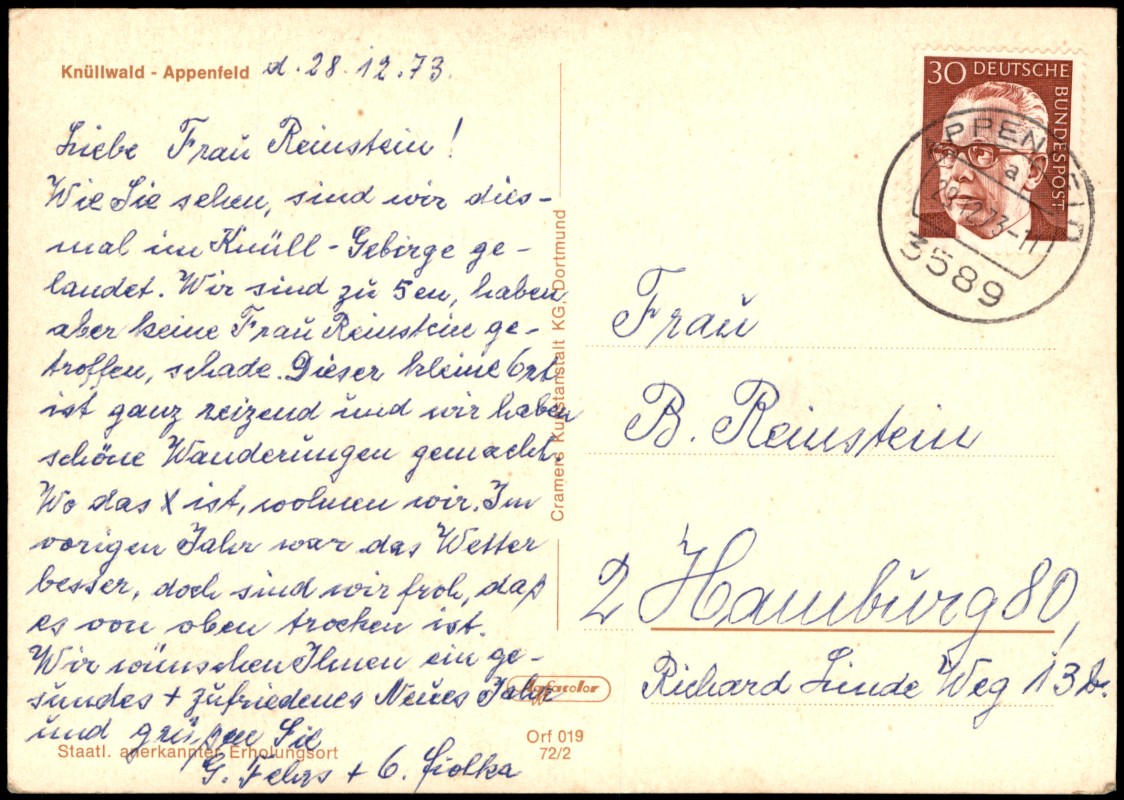 Knüllwald - Appenfeld d. 28.12.73.
Liebe Frau Reinstein!
Wie Sie sehen, sind wir dies-
mal im Knüll-Gebirge ge-
landet. Wir sind zu 5en, haben
aber keine Frau Reinstein ge-
troffen, schade. Dieser kleine Ort
ist ganz reizend und wir haben
schöne Wanderungen gemacht.
Wo das X ist, wohnen wir. Im
vorigen Jahr war das Wetter
besser, doch sind wir froh, daß
es von oben trocken ist.
Wir wünschen Ihnen ein ge-
sundes + zufriedenes Neues Jahr
und grüßen Sie
G. Fehrs + G. Fiolka
Staatl. anerkannter Erholungsort
Cramers Kunstanstalt KG, Dortmund
Agfacolor
Orf 019
72/2
30 DEUTSCHE
BUNDESPOST
APPENFELD
a
29.12.73-11
3589
Frau
B. Reinstein
2 Hamburg 80,
Richard Linde Weg 13 b.